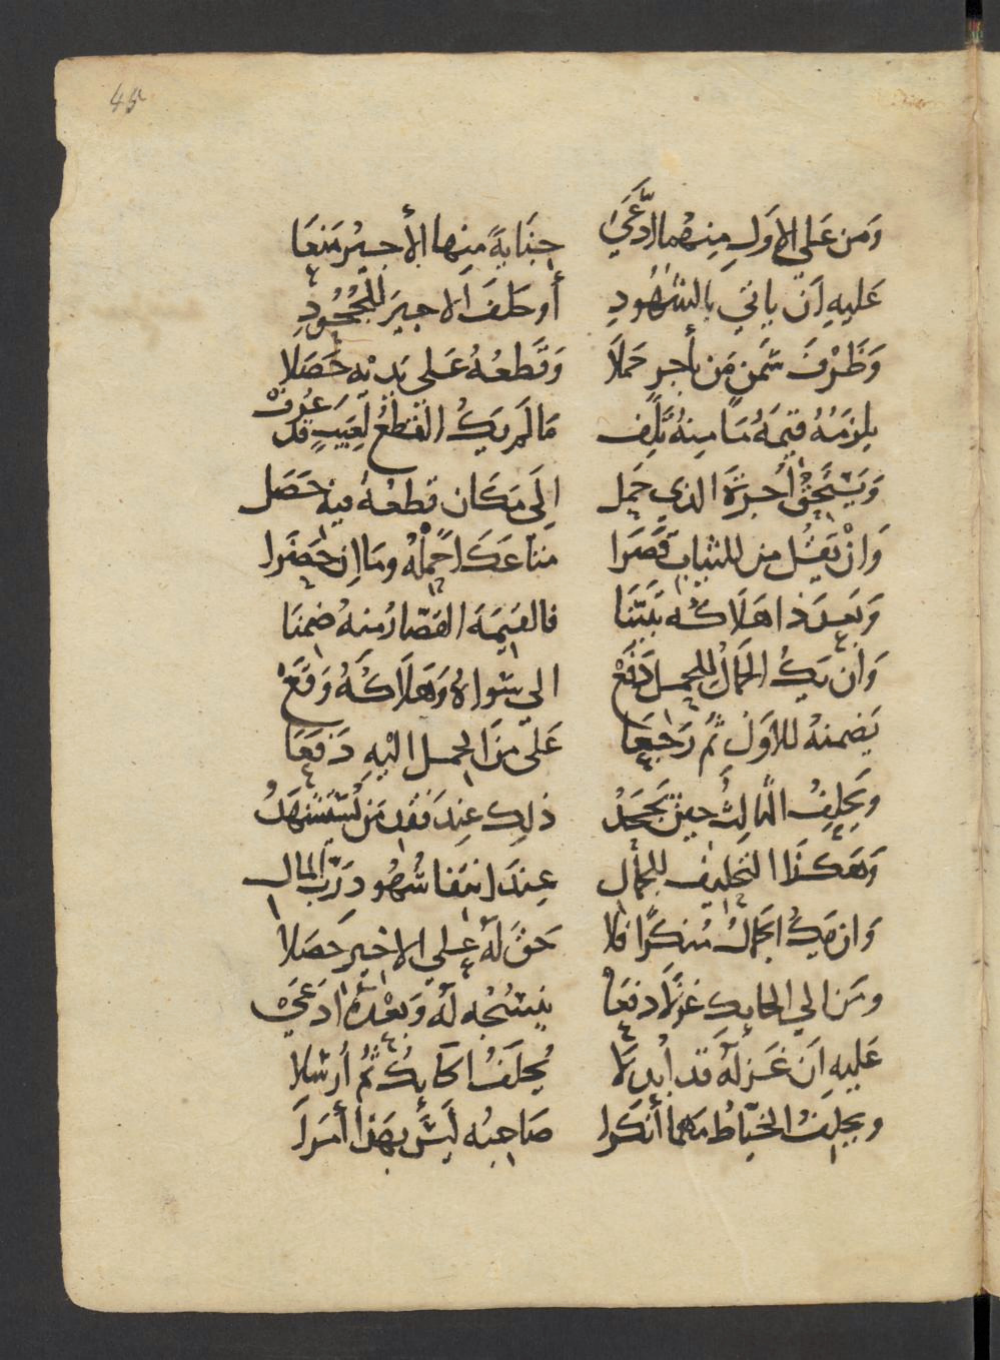 45
وَمَن عَلى الاوَلِ مِنهُما ادَّعَىَ جِنَايةً مِنها الأجيرُ مَنَعَا
عَليهِ اَن ياتي بالشهُودِ أو حَلفَ الاجيرَ للجُحُودِ
وَظَرْفَ سَمنٍ مَن بأجرٍ حَملَا وَقَطعُهُ عَلى يَديْه حَصَلا
يلزمُهُ قيمَةُ مَا مِنهُ تَلِف مَا لَم يكُ القَطعُ لِعَيبٍ قد عُرِفْ
وَيَستَحِقُّ أُجرَةَ الذي حَمِل اِلَى مَكَان قطعهُ فيه حَصَل
وَانْ يَقُل من للثيابِ قَصَرا متاعَكَ احمِلْهُ وما اِن حَضَرا
وَبَعدَ ذا هَلَاكُه تَبَيَّنَا فالقيمَةَ القصّارُ منهُ ضمِنَا
وَان يكُ الجَمالُ للحمل دَفَعْ الي سَواهُ وَهَلَاكُهُ وَقَعْ
يَضمنهُ للاوَلِ ثمَّ رَاجعَا عَلى مَن الحِمل اليْهِ دَفَعَا
ويَحلِفُ الثالِثُ حينَ يَجحَدُ ذلِك عِندَ فَقدِ مَن يُستَشهَدُ
وَهَكذَا التحليف للجمالِ عِندَ انتفا شُهُود رَبّ المالِ
وَان يَكُ الجمالُ مُنكِرًا فلا حَقَّ لَهُ علي الاخيرِ حَصَلا
ومَن الي الحايك غَزلًا دَفَعَا ينسُجُه لَهُ وَبَعْدَهُ ادَعَىْ
عَليهِ اَن غَزلَهُ قد اُبدِلَا يُحلَفُ الحَايكُ ثمَّ اُرسِلا
ويحلِفُ الخيّاطُ مَهما أنكَرا صَاحبُه لَيسَ بهَذا أمَرَا